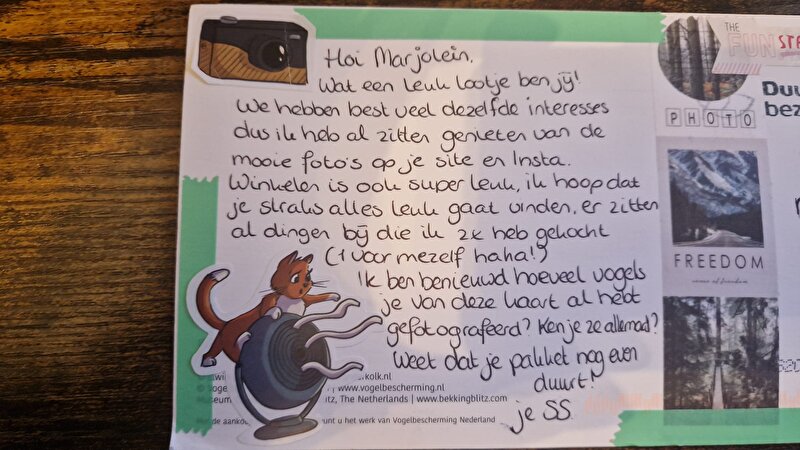 Hoi Marjolein,
Wat een leuk lootje ben jij!
We hebben best veel dezelfde interesses
dus ik heb al zitten genieten van de
mooie foto's op je site en Insta.
Winkelen is ook super leuk, ik hoop dat
je straks alles leuk gaat vinden, er zitten
al dingen bij die ik 2x heb gekocht
(1 voor mezelf haha!)
Ik ben benieuwd hoeveel vogels
je van deze kaart al hebt
gefotografeerd? Ken je ze allemaal?
Weet dat je pakket nog even
duurt!
je SS.
kolk.nl
| www.vogelbescherming.nl
The Netherlands | www.bekkingblitz.com
unt u het werk van Vogelbescherming Nederland
THE
FUN STA
Duu
bez
PHOTO
FREEDOM